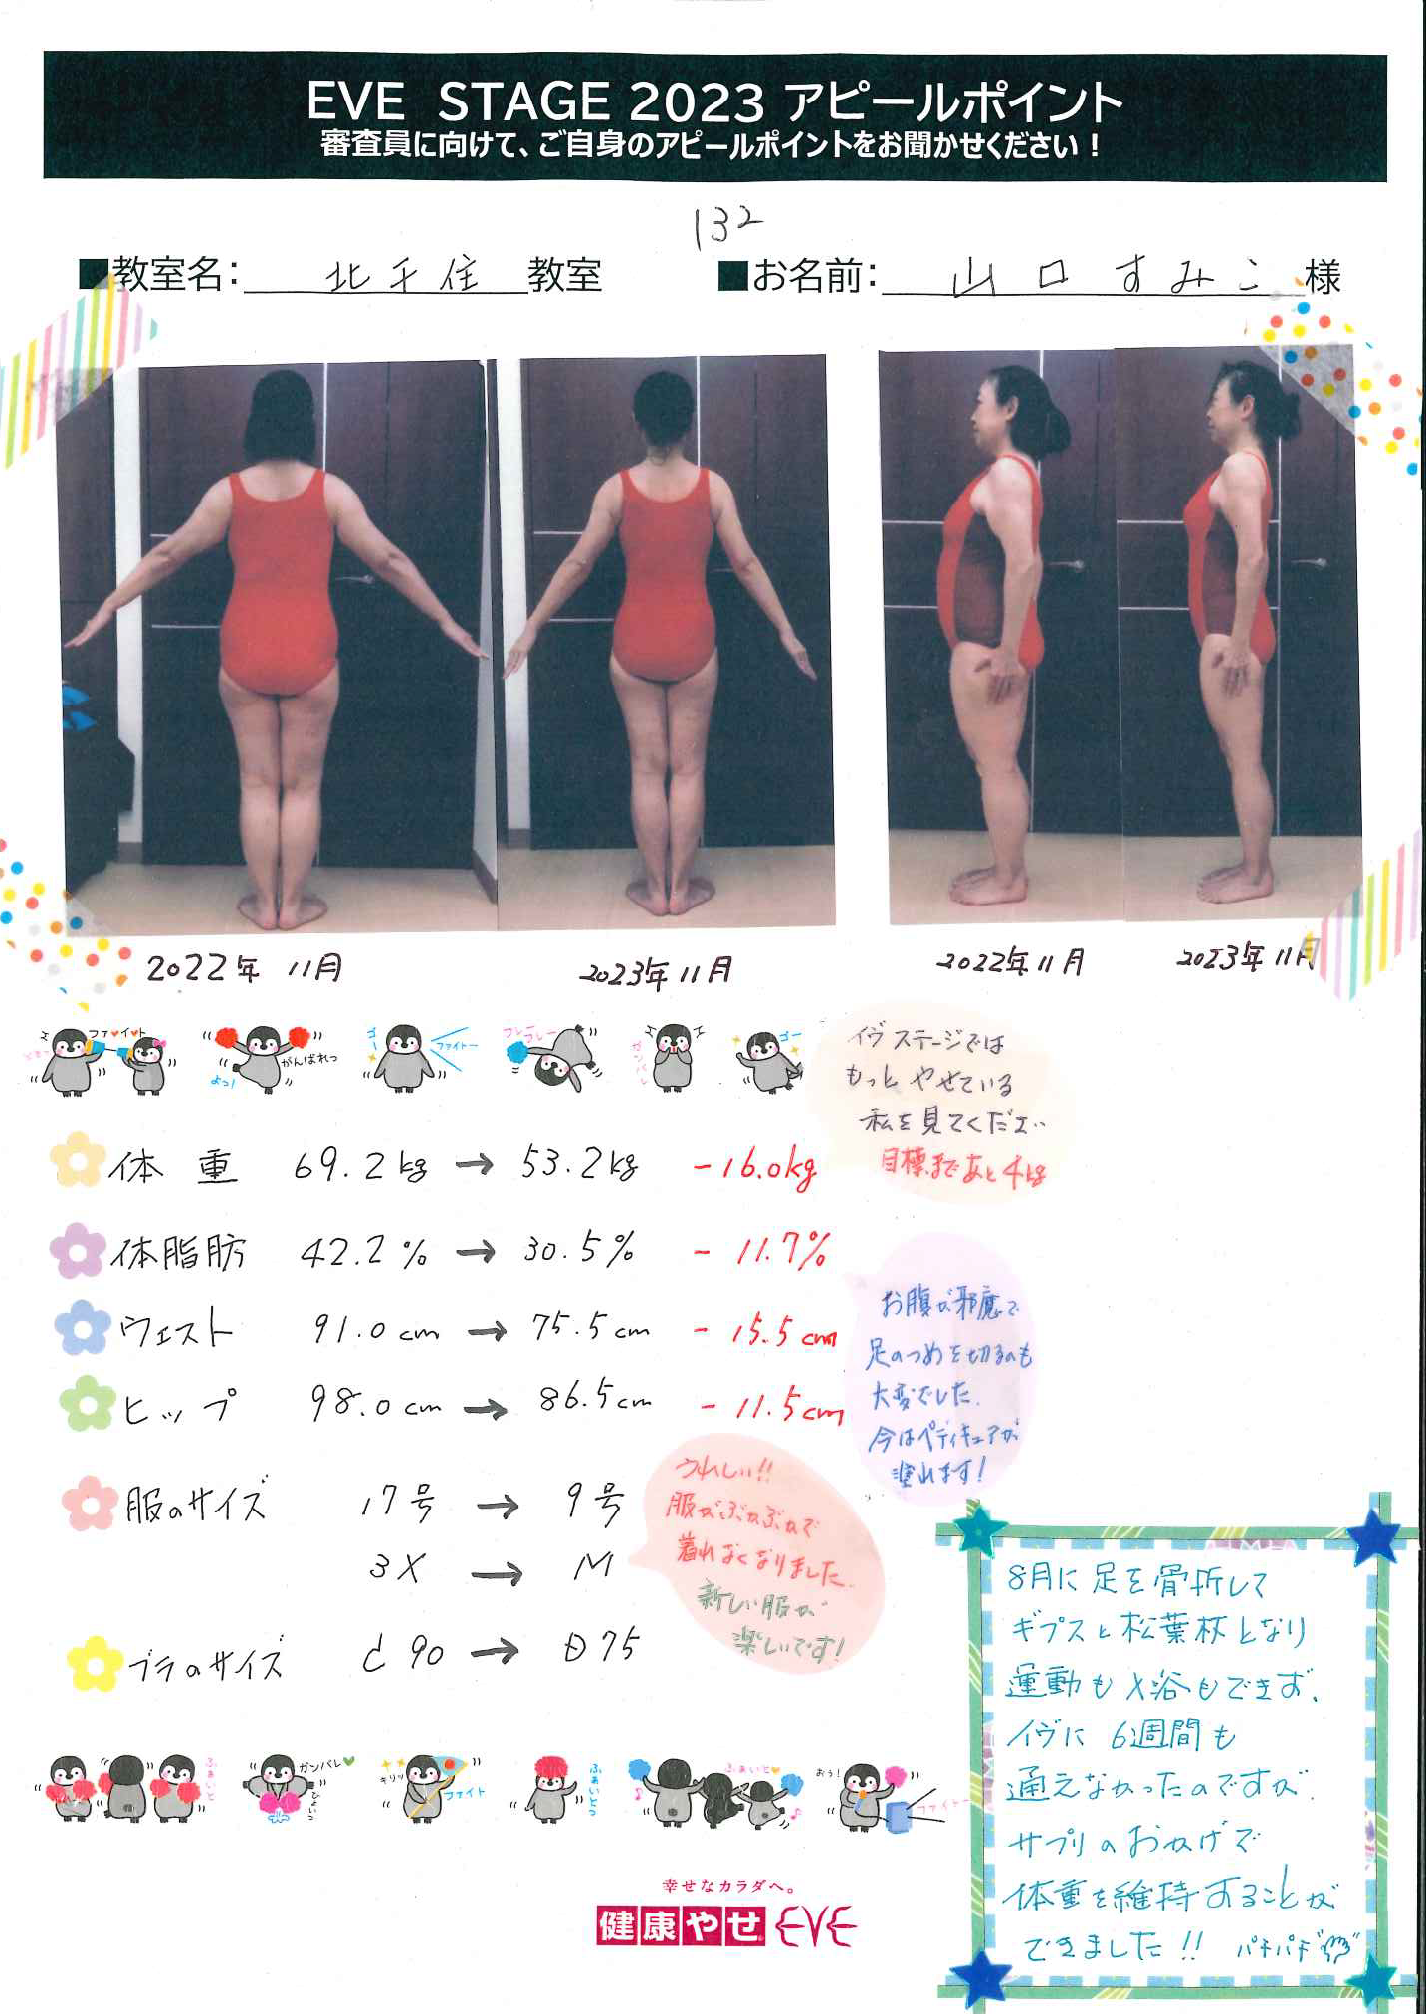 EVE STAGE 2023 アピールポイント
審査員に向けて、ご自身のアピールポイントをお聞かせください！
132
■教室名： 北千住 教室
■お名前： 山口すみこ 様
2022年 11月
2023年 11月
2022年 11月
2023年 11月
ファ♥イ♥ト
がんばれっ
よっ！
ゴー
ファイトー
フレーフレー
ガンバレ
ゴー
イヴステージでは
もっとやせている
私を見てください
目標まであと4kg
体重 69.2kg → 53.2kg -16.0kg
体脂肪 42.2% → 30.5% -11.7%
ウェスト 91.0cm → 75.5cm -15.5cm
ヒップ 98.0cm → 86.5cm -11.5cm
お腹が邪魔で
足のつめを切るのも
大変でした.
今はペディキュアが
塗れます！
服のサイズ 17号 → 9号
3X → M
ブラのサイズ C90 → D75
うれしい!!
服がぶかぶかで
着れなくなりました.
新しい服が
楽しいです！
8月に足を骨折して
ギプスと松葉杖となり
運動も入浴もできず.
イヴに 6週間も
通えなかったのですが.
サプリのおかげで
体重を維持することが
できました!! パチパチ
ふぁいと
ガンバレ♥
ひょいっ
キリッ
ファイト
ふぁいとっ
ふぁいと♥
おう！
ファイトー
幸せなカラダへ。
健康やせ EVE